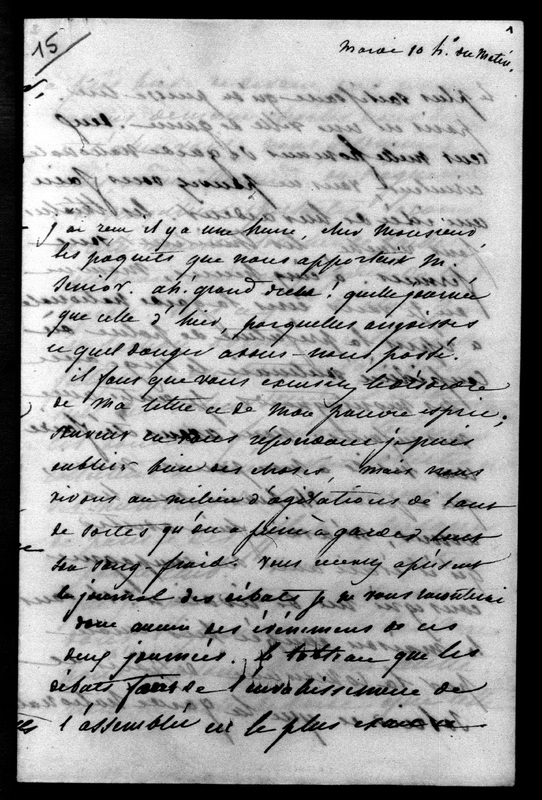 15
Mardi 10 h. du matin.
J'ai reçu il y a une heure, cher Monsieur,
les paquets que nous apportait M.
Senior. ah! grand dieu! quelle journée
que celle d'hier, par quelles angoisses
et quel danger avons-nous passé.
il faut que vous excusiez le désordre
de ma lettre et de mon pauvre esprit;
souvent en vous répondant je puis
oublier bien des choses, mais nous
vivons au milieu d'agitations de tant
de sortes qu'on a peine à garder tout
son sang-froid. Vous recevez à présent
le journal des débats je ne vous raconterai
donc aucun des évènemens de ces
deux journées. le tableau que les
débats font de l'envahissement de
l'assemblée est le plus